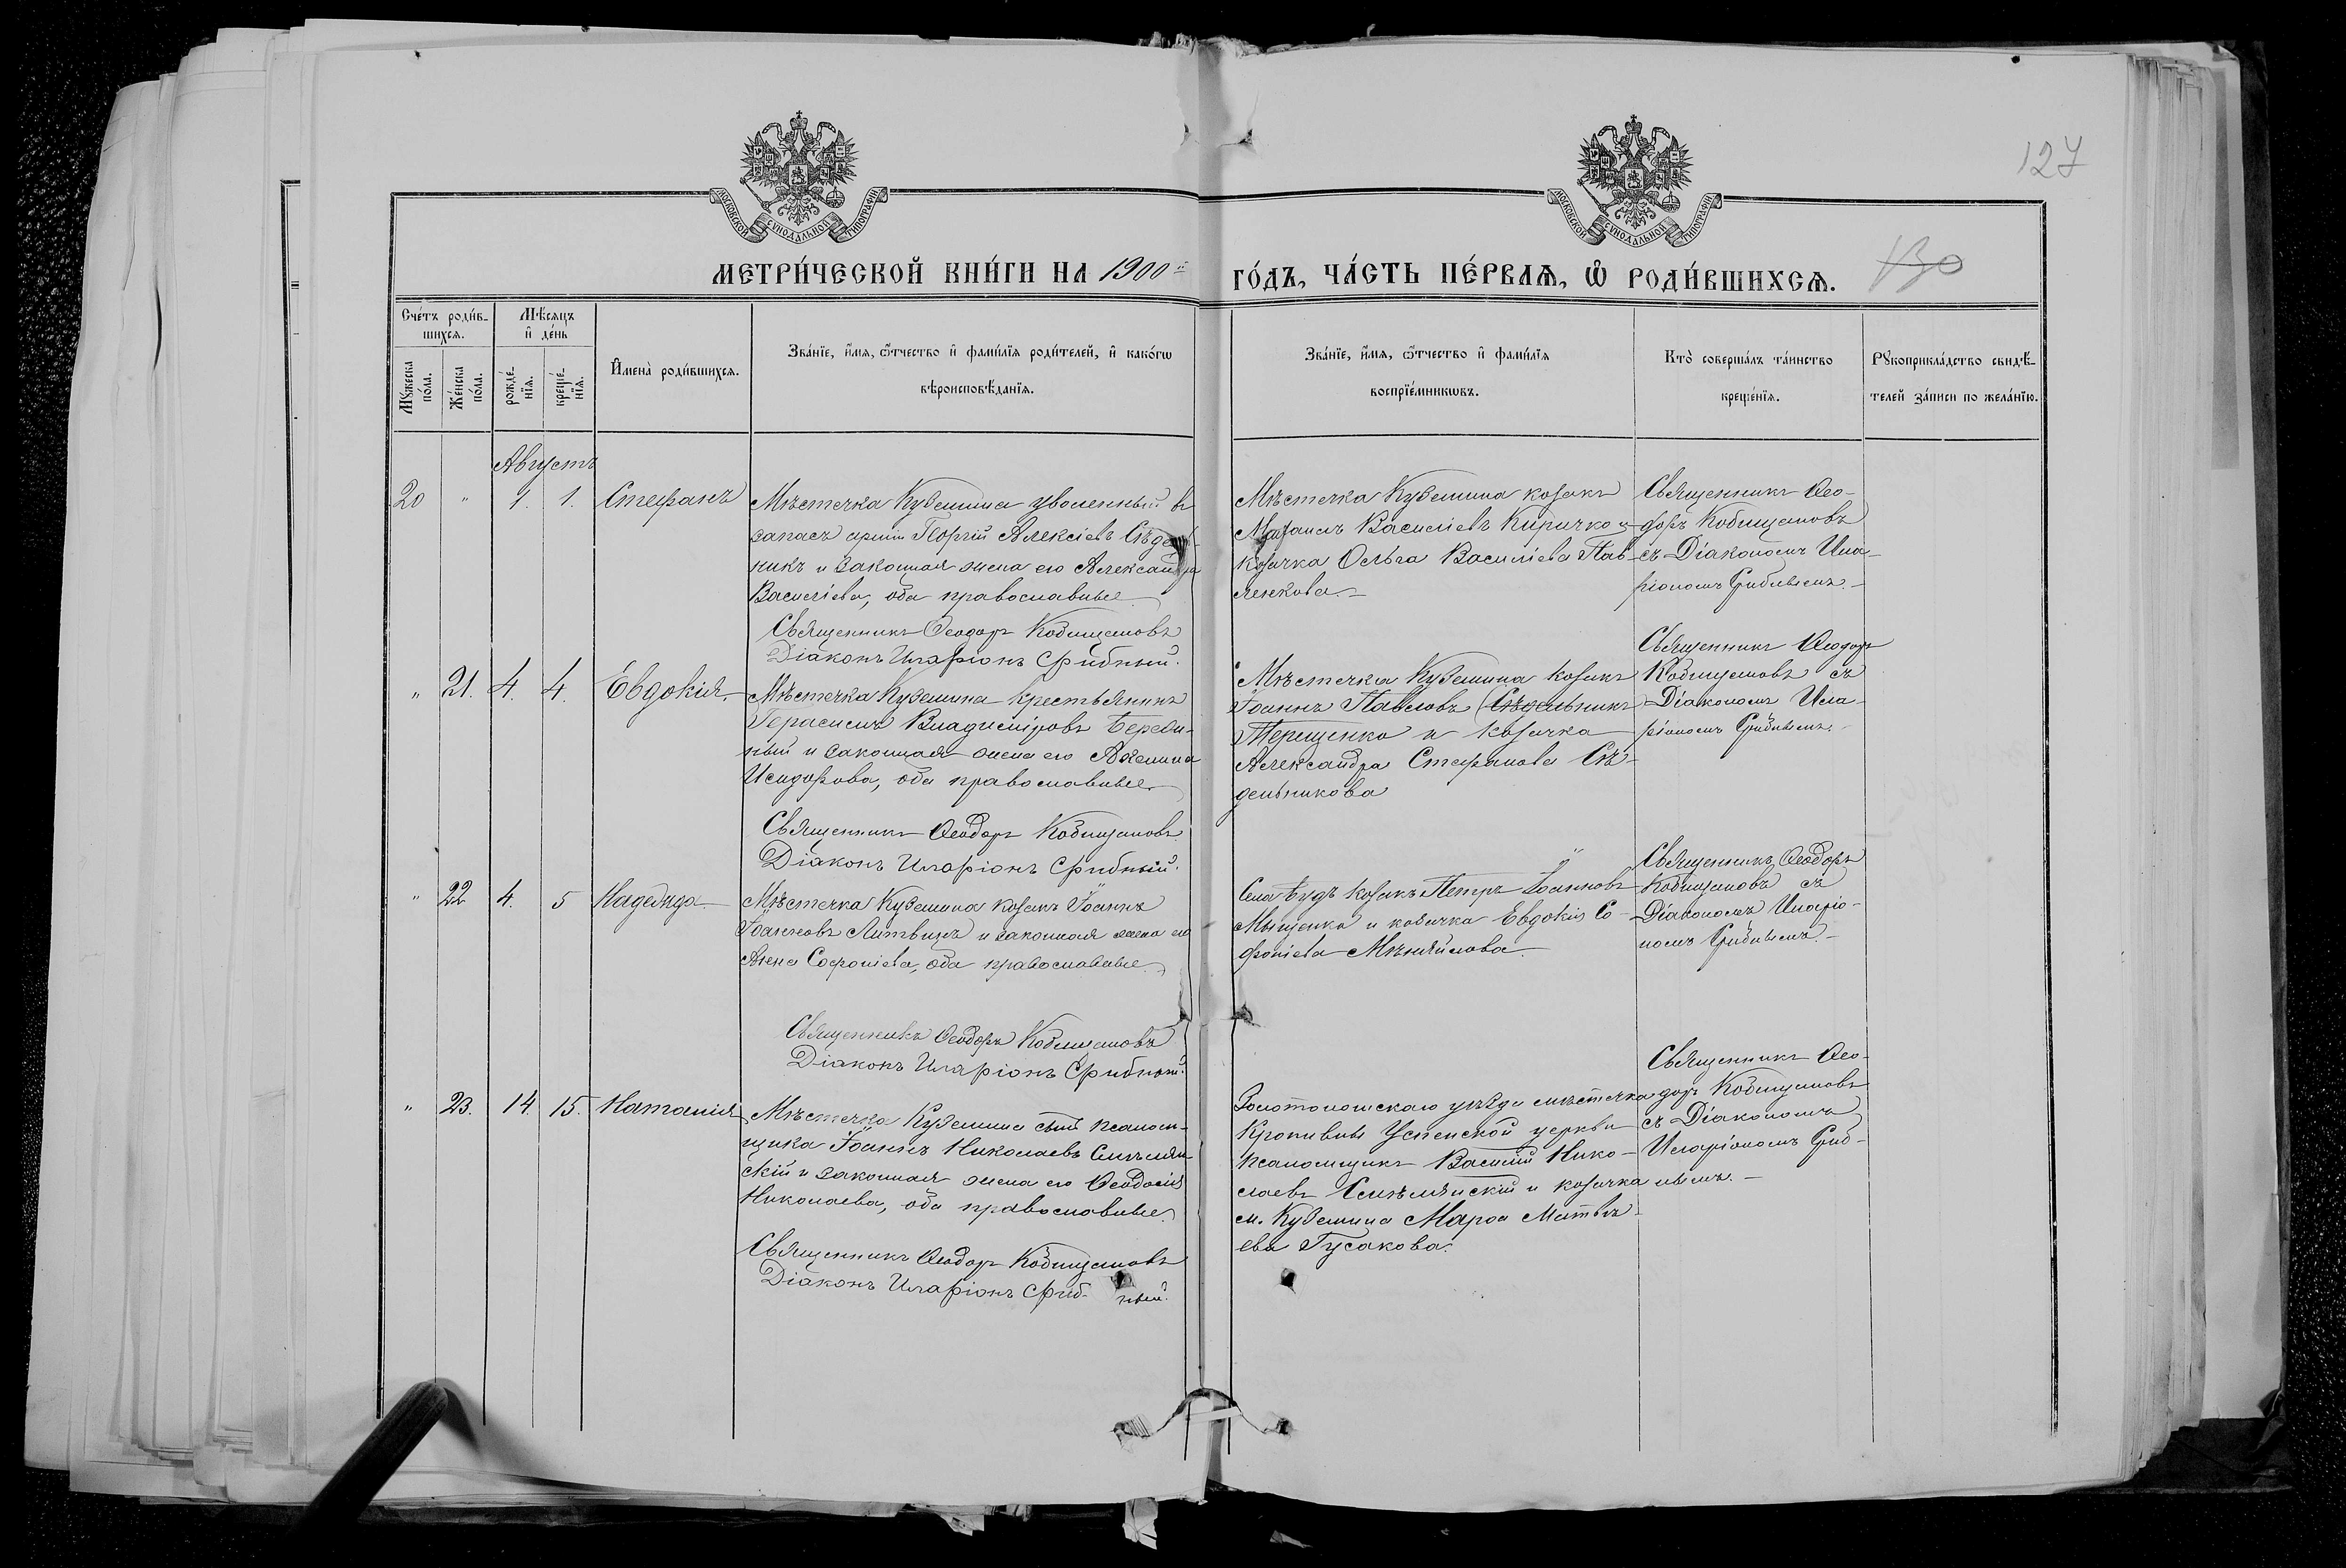 127
МОСКОВСКОЙ СѴНОДАЛЬНОЙ ТИПОГРАФІИ
МОСКОВСКОЙ СѴНОДАЛЬНОЙ ТИПОГРАФІИ
МЕТРИ́ЧЕСКОЙ КНИ́ГИ НА 1900й ГО́ДЪ, ЧА́СТЬ ПЕ́РВАѦ, Ѡ РОДИ́ВШИХСѦ. 130
Сче́тъ роди́в-
шихсѧ.
Мꙋжеска
по́ла.
Же́нска
по́ла.
Мѣ́сѧцъ
и҆ де́нь
рожде́-
нїѧ.
креще́-
нїѧ.
И҆мена̀ роди́вшихсѧ.
Зва́нїе, и҆́мѧ, ѻ҆́тчество и҆ фами́лїѧ роди́телей, и҆ како́гѡ
вѣроисповѣ́данїѧ.
Зва́нїе, и҆́мѧ, ѻ҆́тчество и҆ фами́лїѧ
воспрїе́мникѡвъ.
Кто̀ соверша́лъ та́инство
креще́нїѧ.
Рꙋкоприкла́дство свидѣ́-
телей за́писи по жела́нїю.
Августъ
20 " 1. 1. Стефанъ
Мѣстечка Куземина уволенный въ
запасъ арміи Георгій Алексіевъ Сѣдель-
никъ и законная жена его Александра
Василіева, оба православные
Священникъ Ѳеодоръ Кобищановъ
Діаконъ Иларіонъ Срибный.
Мѣстечка Куземина козакъ
Михаилъ Василіевъ Киричко и
козачка Ольга Василіева Пав-
ленкова.
Священникъ Ѳео-
доръ Кобищановъ
съ Діакономъ Ила-
ріономъ Срибнымъ.
" 21. 4. 4. Евдокія
Мѣстечка Куземина крестьянинъ
Герасимъ Владиміровъ
и законная жена его Акилина
Исидорова, оба православные
Священникъ Ѳеодоръ Кобищановъ
Діаконъ Иларіонъ Срибный.
Мѣстечка Куземина козакъ
Іоаннъ Павловъ (Сѣдельникъ
Терещенко и козачка
Александра Стефанова Сѣ-
дельникова
Священникъ Ѳеодоръ
Кобищановъ съ
Діакономъ Ила-
ріономъ Срибнымъ.
" 22 4. 5 Надежда
Мѣстечка Куземина козакъ Іоаннъ
Іоанновъ Литвинъ и законная жена его
Анна Софоніева, оба православные
Священникъ Ѳеодоръ Кобищановъ
Діаконъ Иларіонъ Срибный.
Села Будъ козакъ Петръ Іоанновъ
Мищенко и козачка Евдокія Со-
фоніева
Священникъ Ѳеодоръ
Кобищановъ съ
Діакономъ Иларіо-
номъ Срибнымъ.
" 23. 14. 15. Наталія
Мѣстечка Куземина сынъ псалом-
щика Іоаннъ Николаевъ Синѣлян-
скій и законная жена его Ѳеодосія
Николаева, оба православные
Священникъ Ѳеодоръ Кобищановъ
Діаконъ Иларіонъ Сриб- ный.
Золотоношскаго уѣзда мѣстечка
Кропивны Успенской церкви
псаломщикъ Василій Нико-
лаевъ Синѣлянскій и козачка
м. Куземина Марѳа Матвѣ-
ева Гусакова.
Священникъ Ѳео-
доръ Кобищановъ
съ Діакономъ
Иларіономъ Сриб-
нымъ.